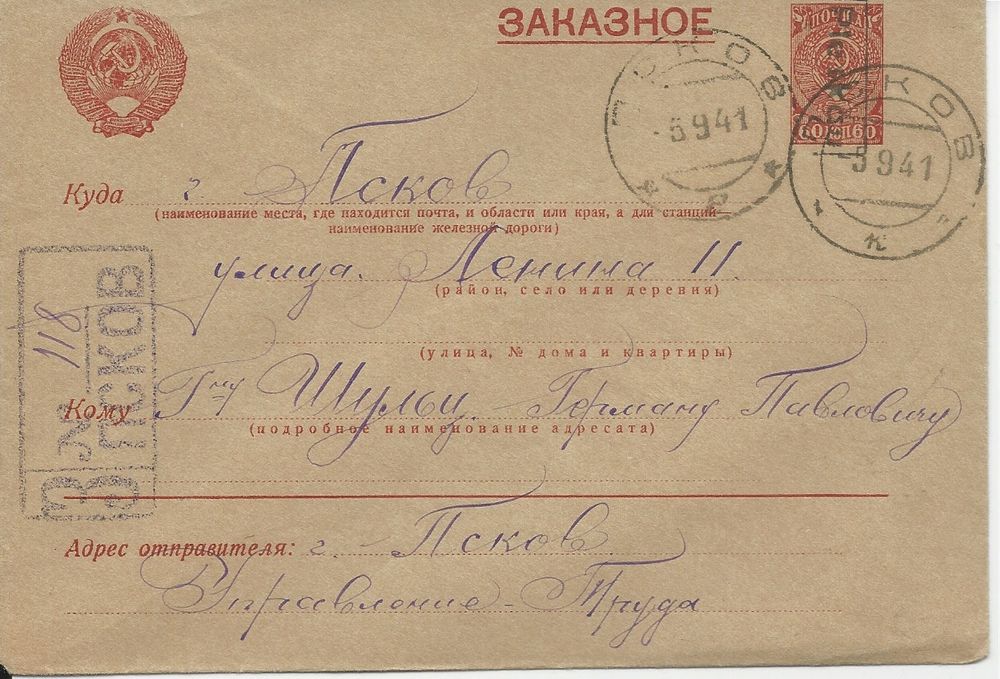 ЗАКАЗНОЕ
ПОЧТА
60 КОП 60
ПСКОВ
-5 9 41
к
ПСКОВ
5 9 41
к
Куда г Псков
(наименование места, где находится почта, и области или края, а для станций—
наименование железной дороги)
улица. Ленина 11.
(район, село или деревня)
(улица, № дома и квартиры)
Кому Г-ну Шульц. Герману Павловичу
(подробное наименование адресата)
З ПСКОВ
№ 118
Адрес отправителя: г. Псков
Управление-Труда